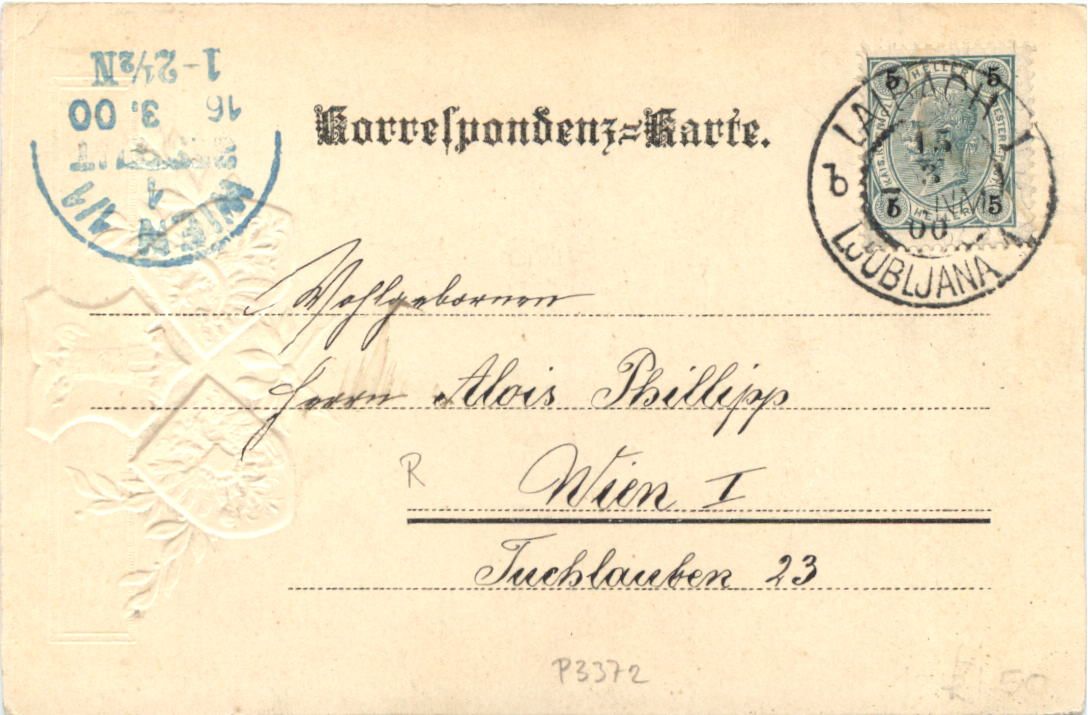 WIEN 1/1
1
BESTELLT
16 3. 00
1-2½N
Korrespondenz=Karte.
LAIBACH 1
15
3
00
b
LJUBLJANA
5 HELLER 5
5 HELLER 5
Wohlgebornen
Herrn Alois Phillipp
R
Wien I
Tuchlauben 23
P3372
50